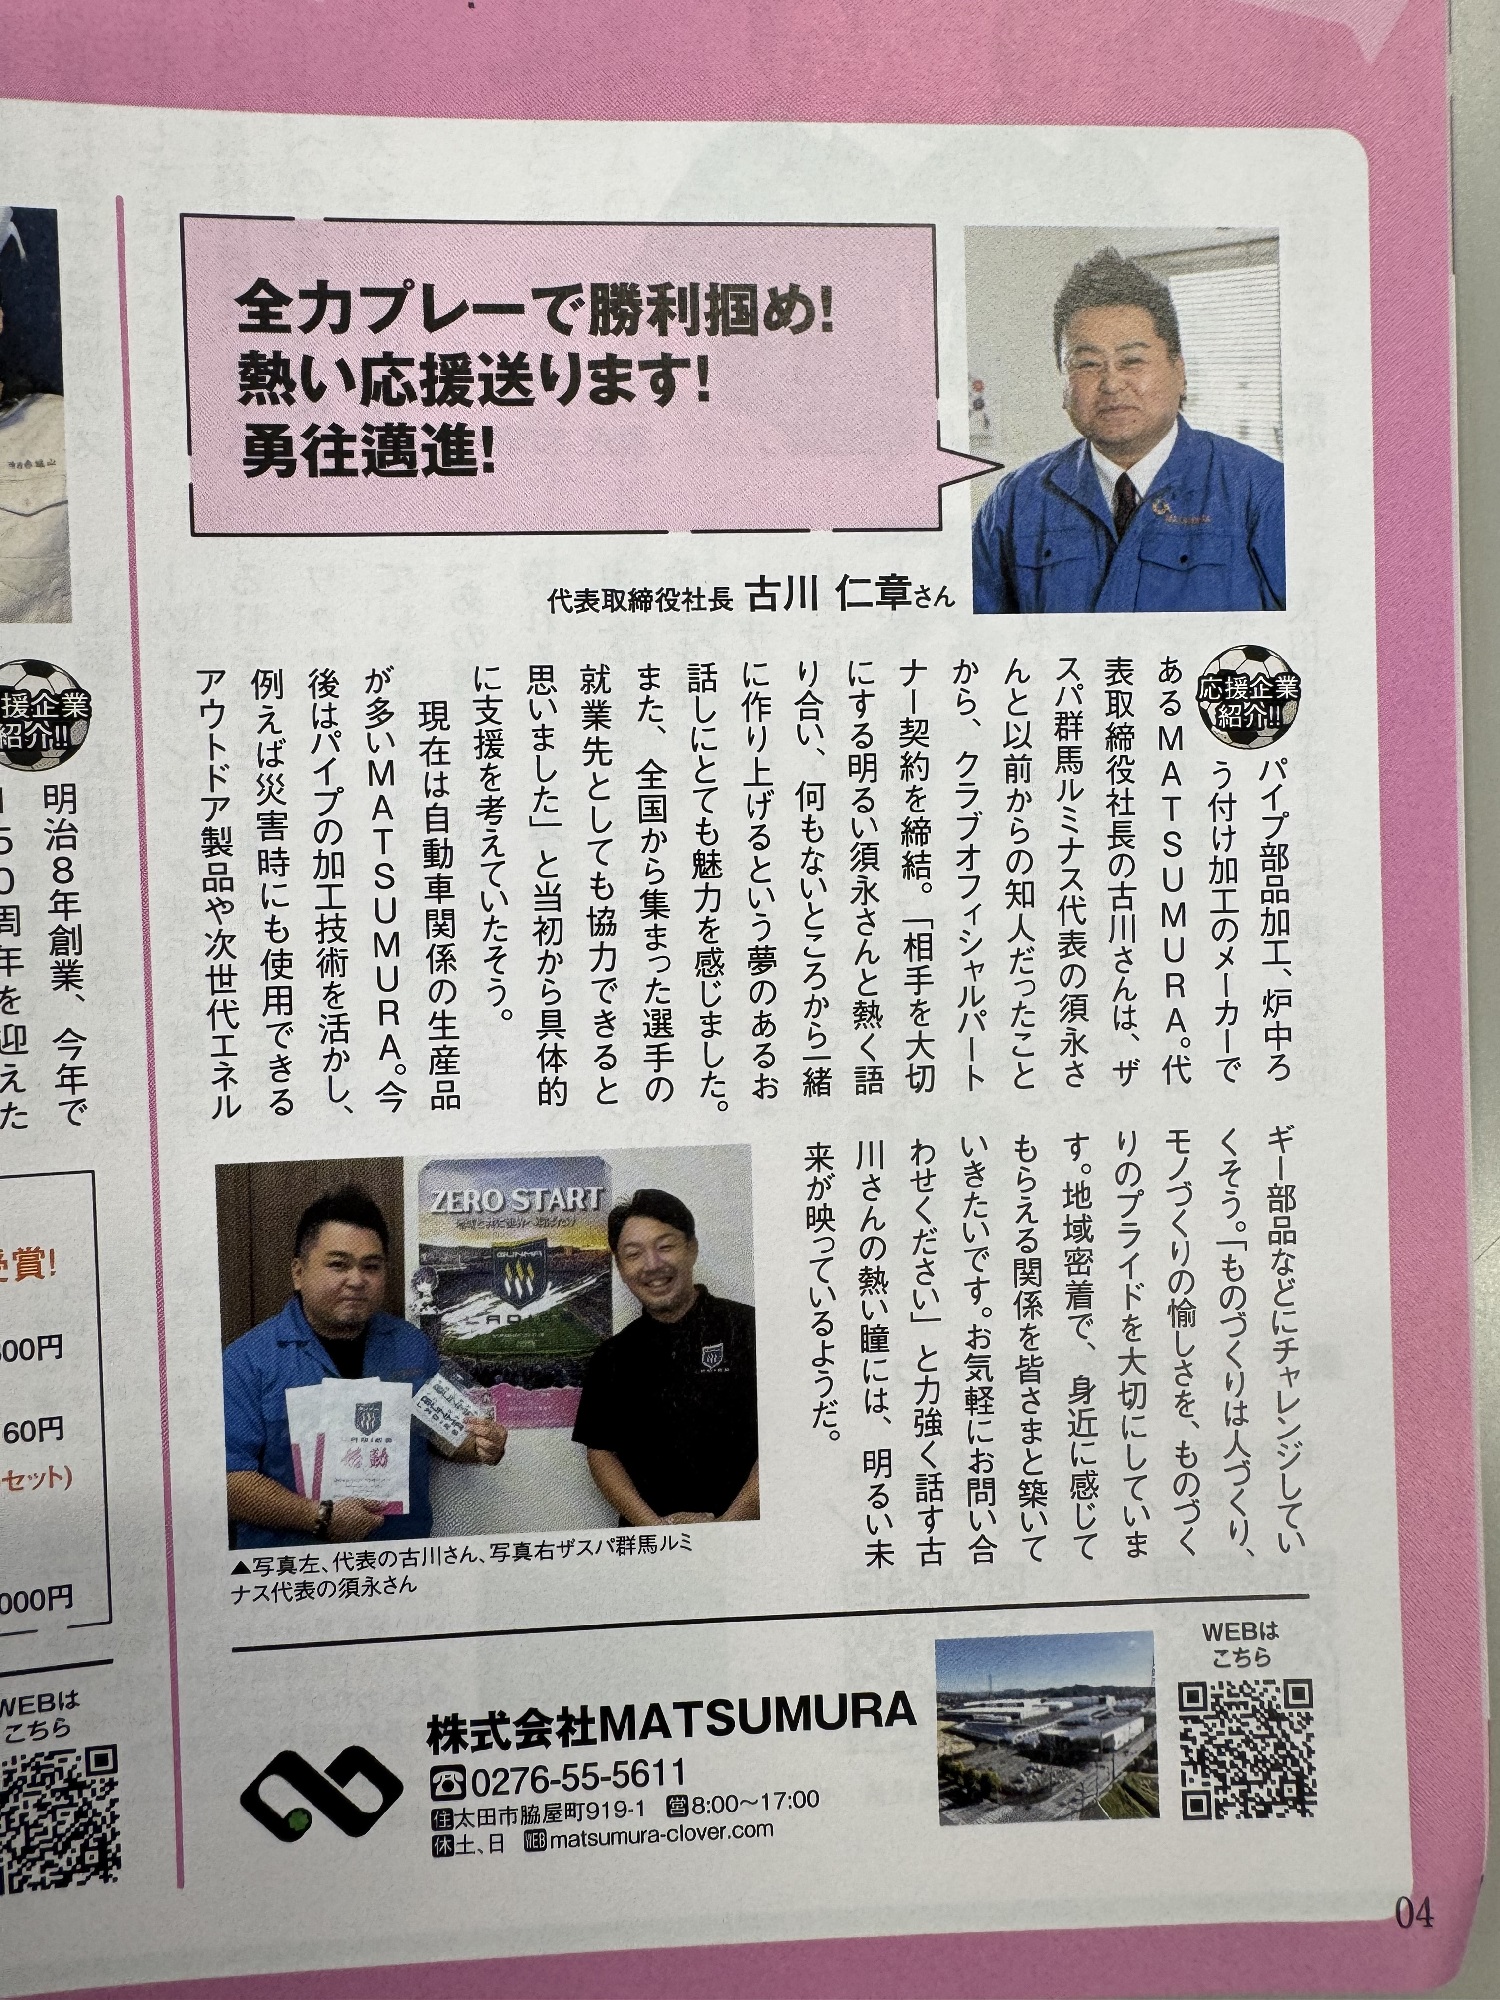 全力プレーで勝利掴め!
熱い応援送ります!
勇往邁進!
代表取締役社長 古川 仁章さん
応援企業
紹介!!
パイプ部品加工、炉中ろ
う付け加工のメーカーで
あるMATSUMURA。代
表取締役社長の古川さんは、ザ
スパ群馬ルミナス代表の須永さ
んと以前からの知人だったこと
から、クラブオフィシャルパート
ナー契約を締結。「相手を大切
にする明るい須永さんと熱く語
り合い、何もないところから一緒
に作り上げるという夢のあるお
話しにとても魅力を感じました。
また、全国から集まった選手の
就業先としても協力できると
思いました」と当初から具体的
に支援を考えていたそう。
現在は自動車関係の生産品
が多いMATSUMURA。今
後はパイプの加工技術を活かし、
例えば災害時にも使用できる
アウトドア製品や次世代エネル
ギー部品などにチャレンジしてい
くそう。「ものづくりは人づくり、
モノづくりの愉しさを、ものづく
りのプライドを大切にしていま
す。地域密着で、身近に感じて
もらえる関係を皆さまと築いて
いきたいです。お気軽にお問い合
わせください」と力強く話す古
川さんの熱い瞳には、明るい未
来が映っているようだ。
ZERO START
GUNMA
▲写真左、代表の古川さん、写真右ザスパ群馬ルミ
ナス代表の須永さん
株式会社MATSUMURA
0276-55-5611
住太田市脇屋町919-1 営8:00〜17:00
休土、日 WEB matsumura-clover.com
WEBは
こちら
04
援企業
紹介!!
明治8年創業、今年で
150周年を迎えた
受賞!
00円
60円
セット)
000円
WEBは
こちら